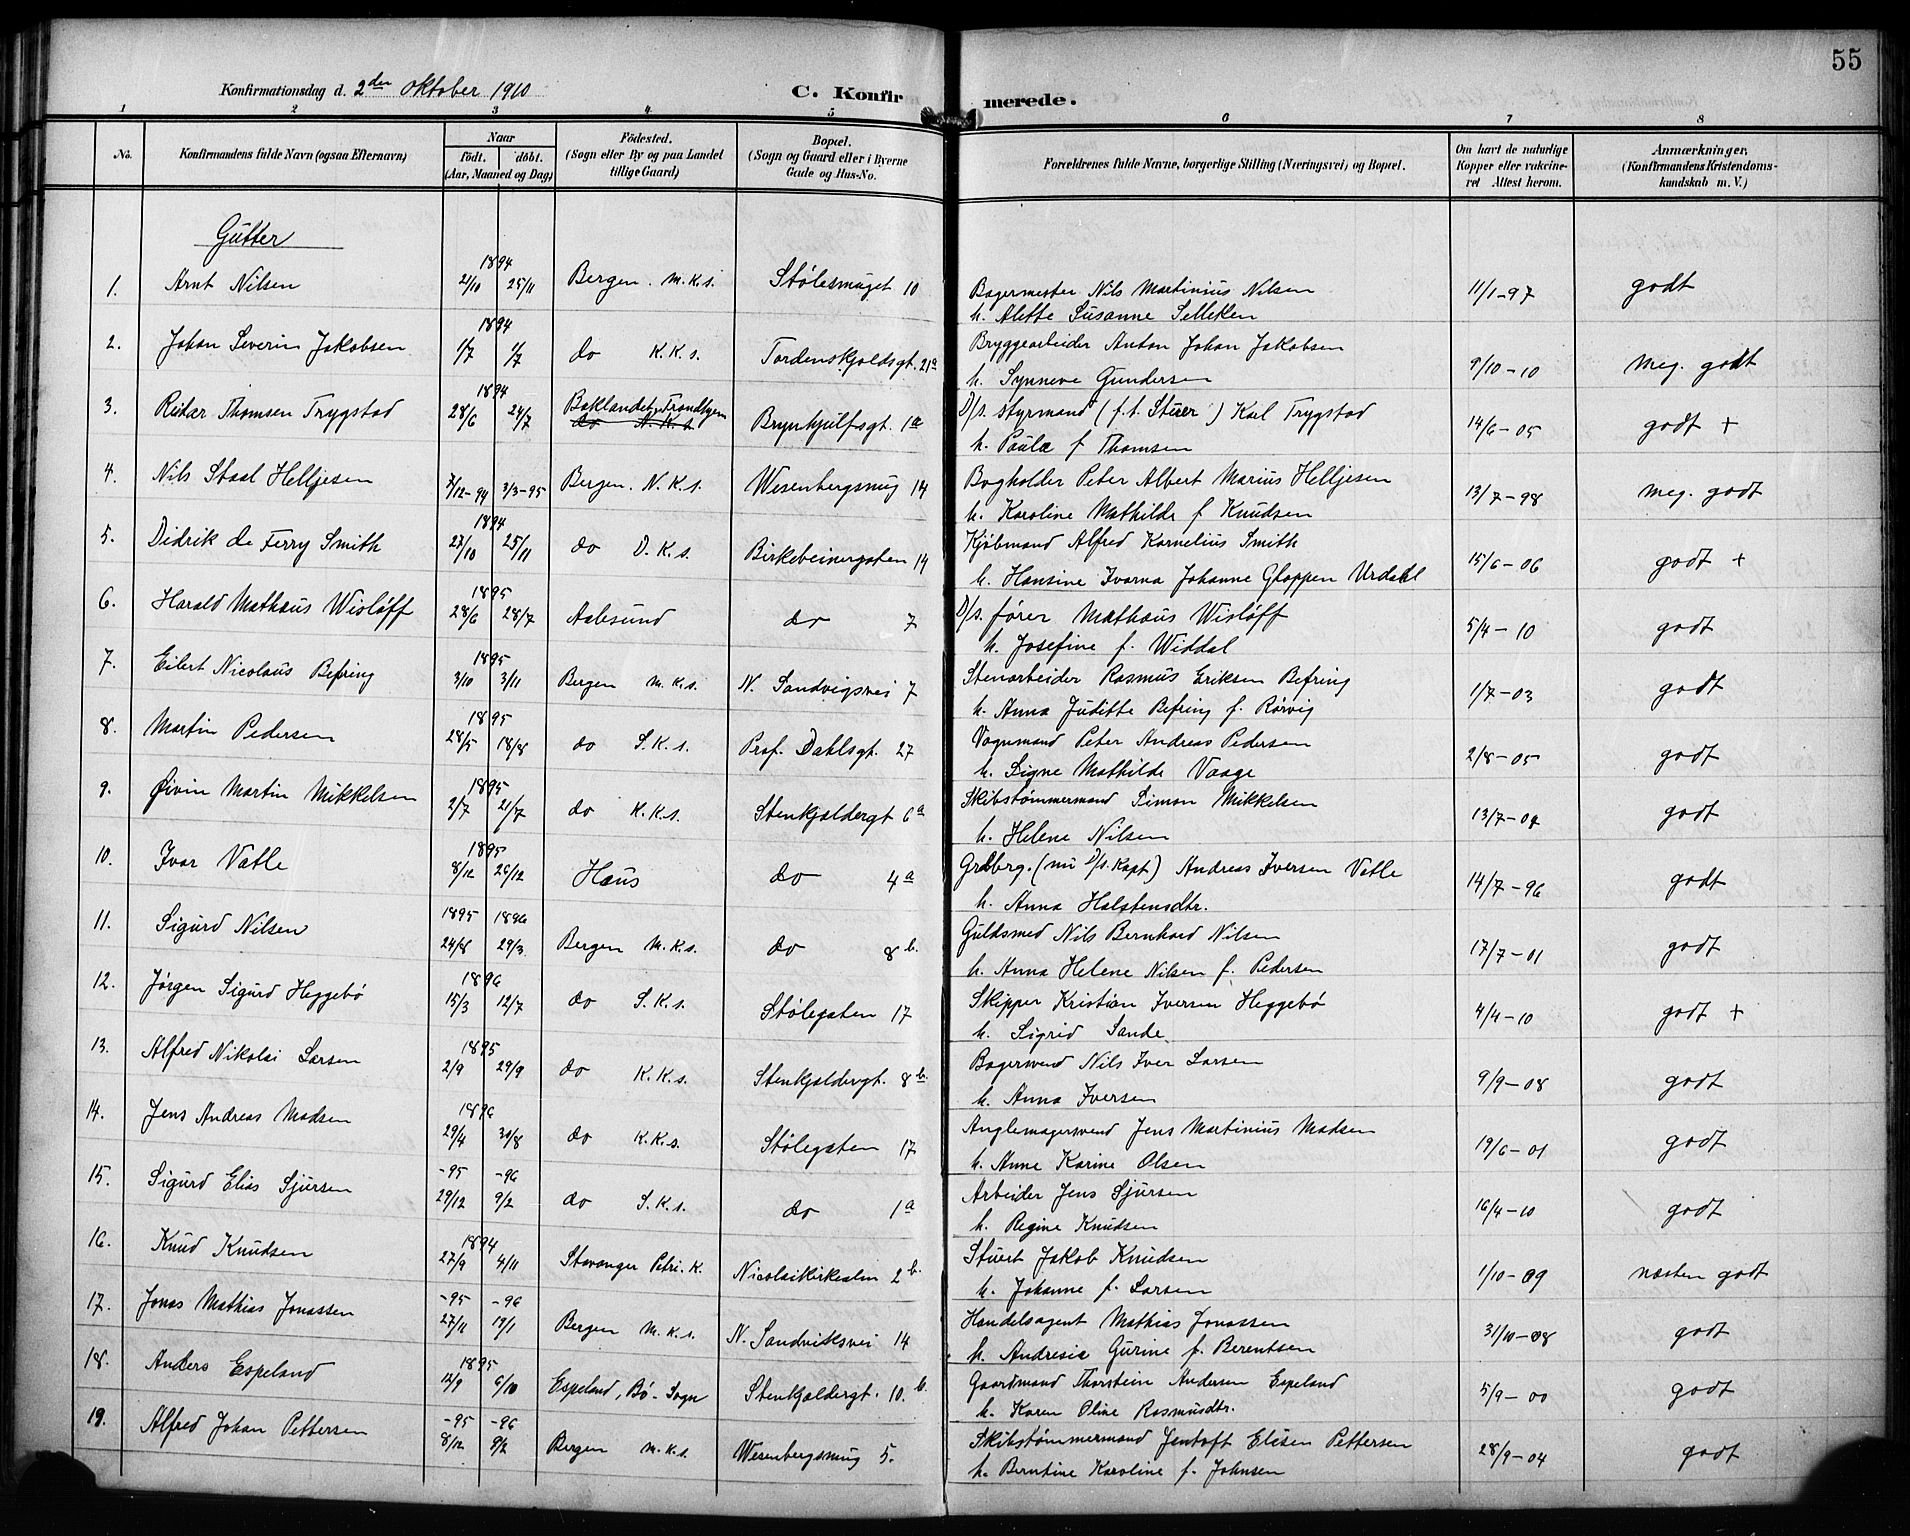 55
Konfirmationsdag d. 2den Oktober 1910
C. Konfir merede.
1 2 3 4 5 6 7 8
No. Konfirmandens fulde Navn (ogsaa Efternavn) Naar født. døbt. (Aar, Maaned og Dag) Fødested. (Sogn eller By og paa Landet tillige Gaard) Bopæl. (Sogn og Gaard eller i Byerne Gade og Hus-No. Forældrenes fulde Navne, borgerlige Stilling (Næringsvei) og Bopæl. Om havt de naturlige Kopper eller vakcineret Attest herom. Anmærkninger, (Konfirmandens Kristendomskundskab m. V.)
Gutter
1. Arnt Nilsen 1894 21/10 25/11 Bergen. M.K.s. Stølesmuget 10 Bagermester Nils Martinius Nilsen 11/1-97 godt
h. Alette Susanne Selleken
2. Johan Severin Jakobsen 1894 1/7 1/7 do K.K.s. Tordenskjoldsgt. 21a Bryggearbeider Anton Johan Jakobsen 9/10-10 meg. godt
h. Synneve Gundersen
3. Reidar Thomsen Trygstad 1894 28/6 24/7 Baklandet, Trondhjem do N.K.s. Brynhjulfsgt. 1a D/s. styrmand (f.t. Stuer) Karl Trygstad 14/6-05 godt +
h. Paula f Thomsen
4. Nils Staal Helljesen 7/12-94 3/3-95 Bergen. N.K.s. Wesenbergsmug 14 Bogholder Peter Albert Marius Helljesen 13/7-98 meg. godt
h. Karoline Mathilde f Knudsen
5. Didrik de Ferry Smith 1894 27/10 25/11 do D.K.s. Birkebeinergaten 14 Kjøbmand Alfred Kornelius Smith 15/6-06 godt +
h. Hansine Ivarna Johanne Gloppen Urdahl
6. Harald Mathæus Wisløff 1895 28/6 28/7 Aalesund do 7 D/s. fører Mathæus Wisløff 5/4-10 godt
h. Josefine f. Widdal
7. Eilert Nicolaus Befring 1895 3/10 3/11 Bergen M.K.s. N. Sandvigsvei 7 Stenarbeider Rasmus Eriksen Befring 1/7-03 godt
h. Anna Juditte Befring f. Rørvig
8. Martin Pedersen 1895 28/5 18/8 do S.K.s. Prof. Dahlsgt. 27 Vognmand Peter Andreas Pedersen 2/8-05 godt
h. Signe Mathilde Vaage
9. Øivin Martin Mikkelsen 1895 2/7 21/7 do K.K.s. Stenkjeldergt 6a Skibstømmermand Simon Mikkelsen 13/7-04 godt
h. Helene Nilsen
10. Ivar Vatle 1895 8/12 26/12 Haus do 4a Grdbrg. (nu D/s. Kapt) Andreas Iversen Vatle 14/7-96 godt
h. Anna Halstensdtr.
11. Sigurd Nilsen 1895 1896 24/8 29/3 Bergen M.K.s. do 8b. Guldsmed Nils Bernhard Nilsen 17/7-01 godt
h. Anna Helene Nilsen f. Pedersen
12. Jørgen Sigurd Heggebø 1896 15/3 12/7 do S.K.s. Stølegaten 17 Skipper Kristian Iversen Heggebø 4/4-10 godt +
h. Sigrid Sande
13. Alfred Nikolai Larsen 1895 2/9 29/9 do K.K.s. Stenkjeldergt. 8b. Bagersvend Nils Iver Larsen 9/9-08 godt
h. Anna Iversen
14. Jens Andreas Madsen 1896 29/4 30/8 do K.K.s. Stølegaten 17 Anglemagersvend Jens Martinius Madsen 19/6-01 godt
h. Anne Karine Olsen
15. Sigurd Elias Sjursen -95 -96 29/12 9/2 do S.K.s. do 1a Arbeider Jens Sjursen 16/4-10 godt
h. Regine Knudsen
16. Knud Knudsen 1894 27/9 4/11 Stavanger Petri.K. Nicolaikirkealm 2b. Stuert Jakob Knudsen 1/10-09 næsten godt
h. Johanne f. Larsen
17. Jonas Mathias Jonassen -95 -96 27/11 19/1 Bergen M.K.s. N. Sandviksvei 14 Handelsagent Mathias Jonassen 31/10-08 godt
h. Andresia Gurine f. Berentsen
18. Anders Espeland 1895 12/9 6/10 Espeland, Bø-Sogn Stenkjeldergt. 10.b. Gaardmand Thorstein Andersen Espeland 5/9-00 godt
h. Karen Oline Rasmusdtr.
19. Alfred Johan Pettersen -95 -96 8/12 9/2 Bergen M.K.s. Wesenbergsmug 5. Skibstømmermand Jentoft Elisen Pettersen 28/9-04 godt
h. Berntine Karoline f. Johnsen